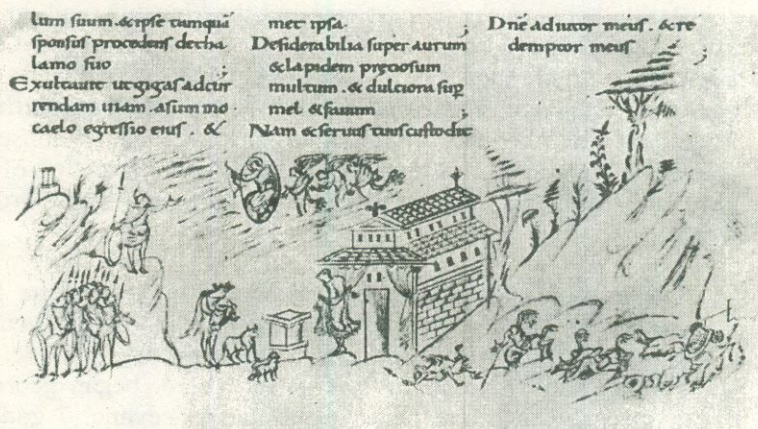 lum suum . & ipse tamquā
sponsus procedens detha
lamo suo ;
Exultauit utgigas adcur
rendam uiam . asummo
caelo egressio eius . &
met ipsa .
Desiderabilia super aurum
& lapidem preciosum
multum . & dulciora sup̄
mel & fauum ;
Nam & seruus tuus custodit
Dn̄e adiutor meus . & re
demptor meus ;